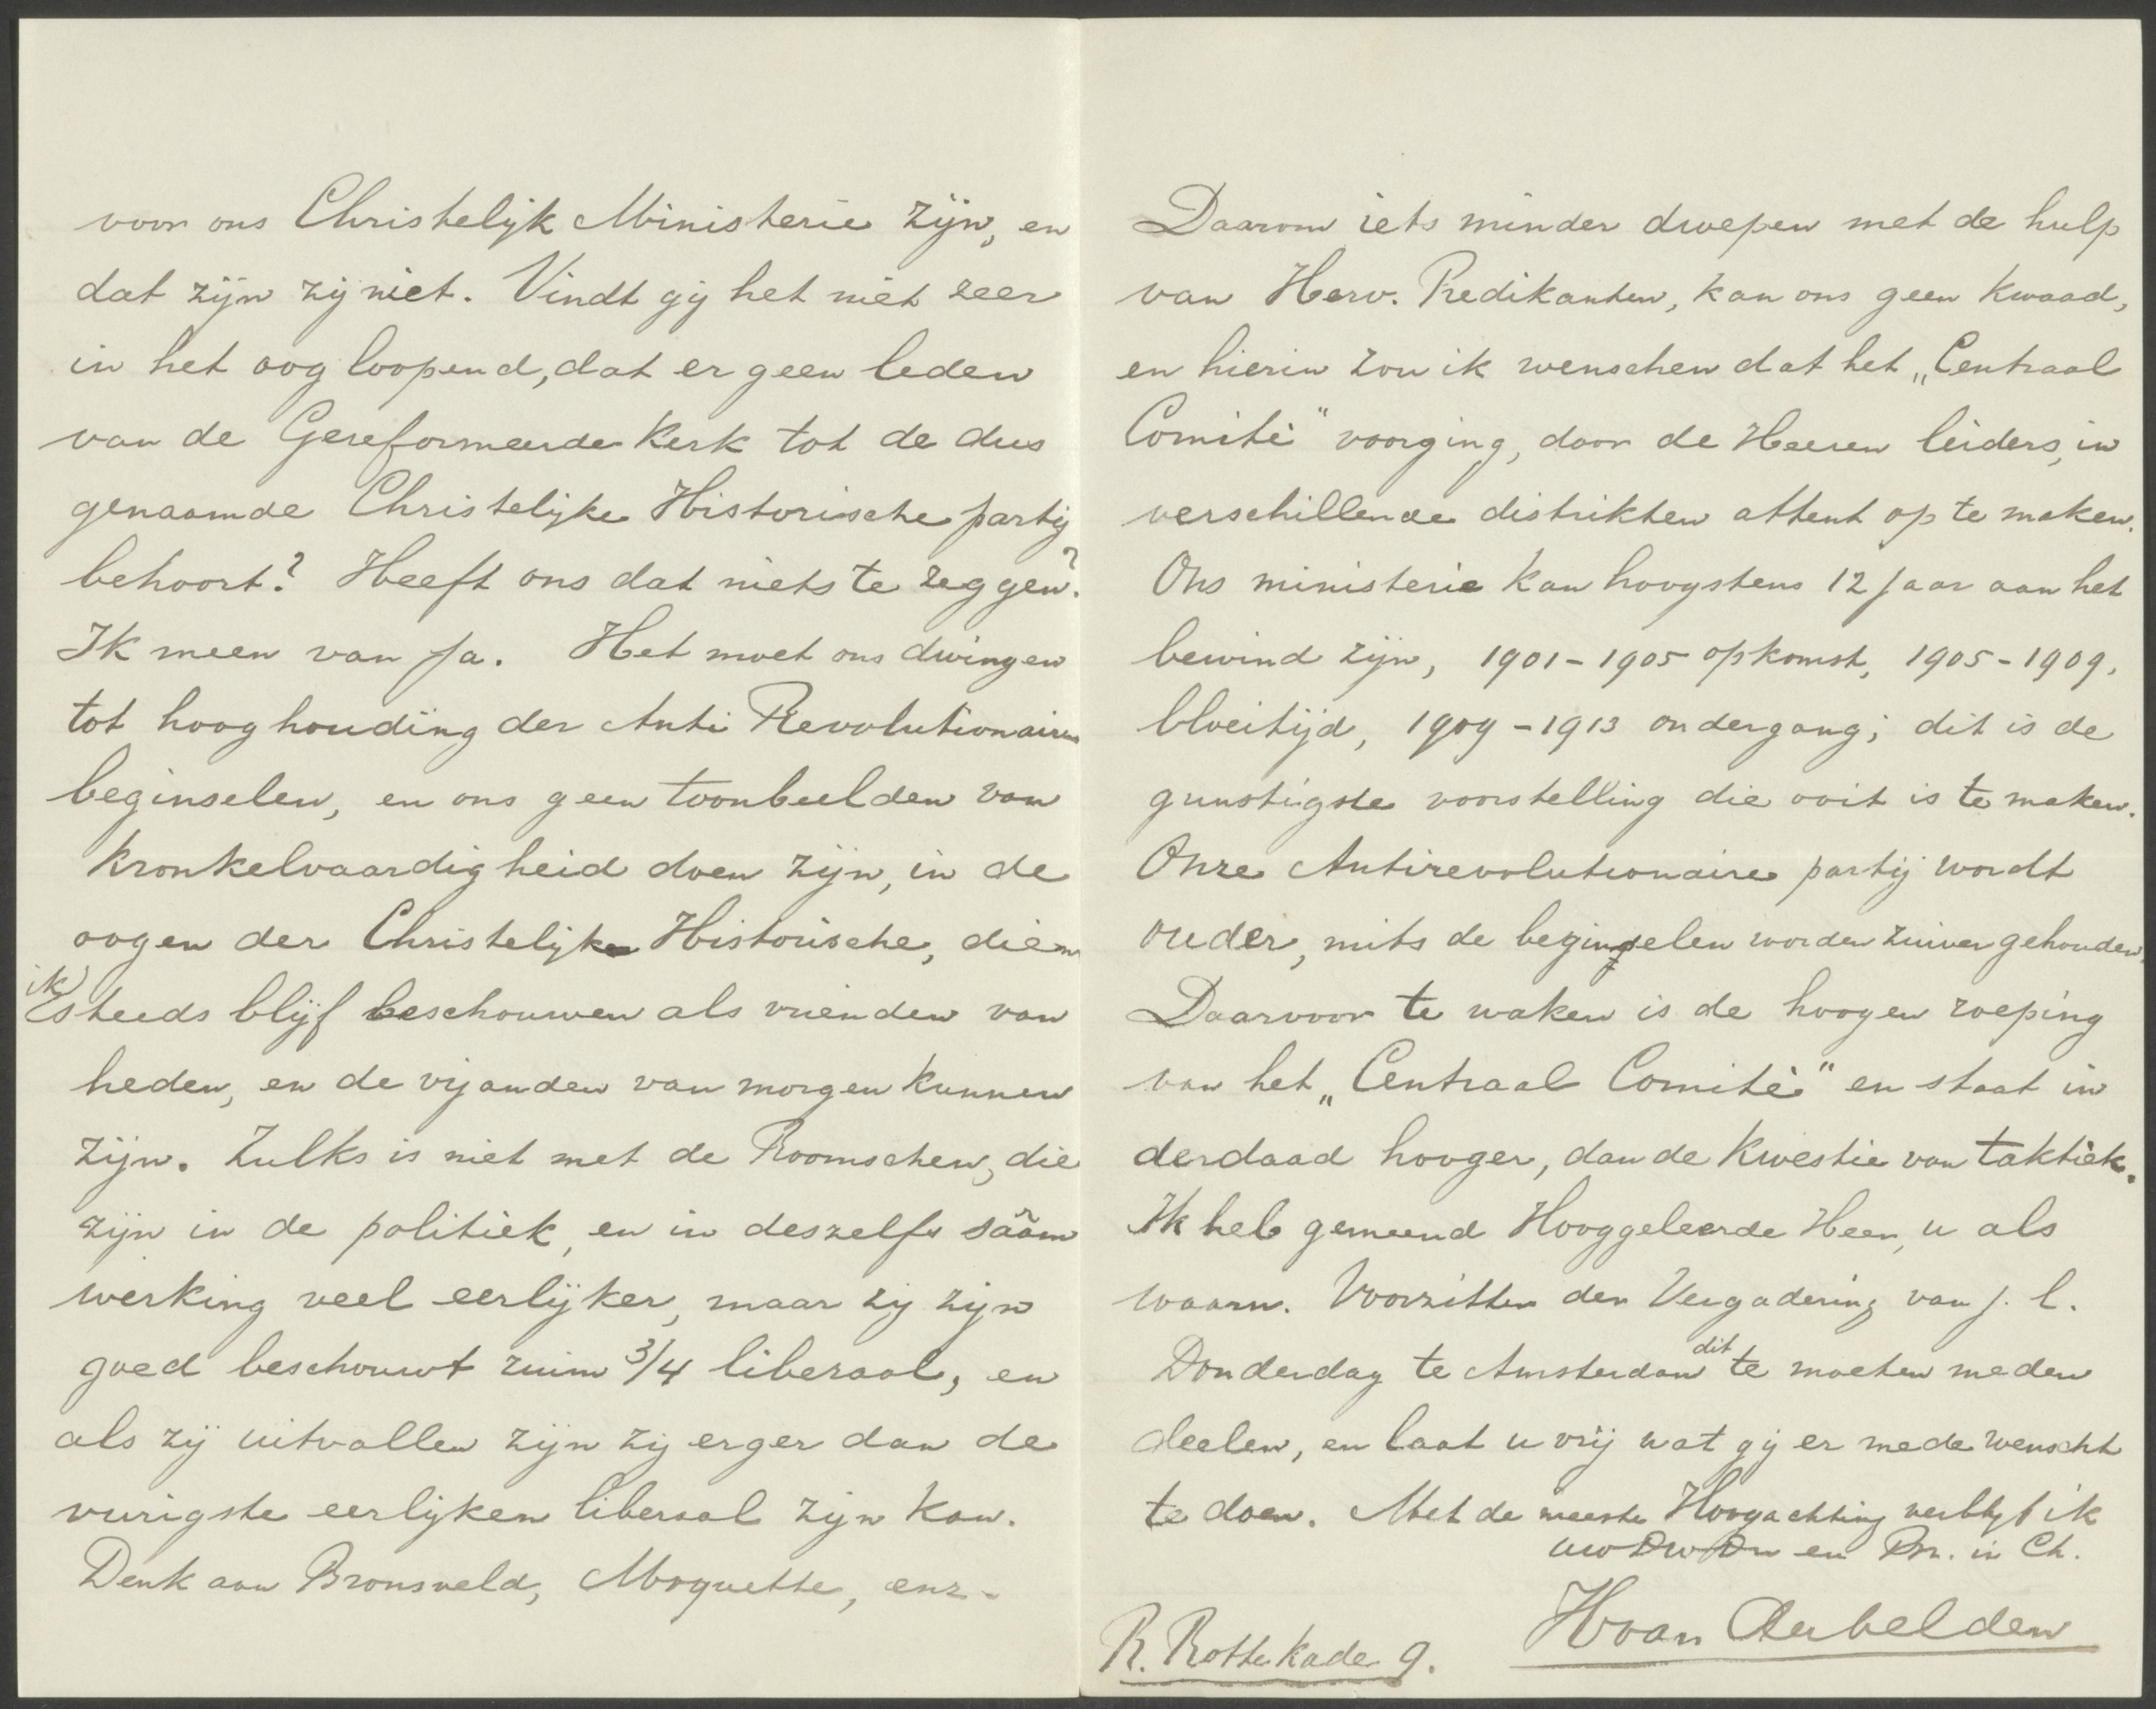 voor ons Christelijk Ministerie zijn, en
dat zijn zij niet. Vindt gij het niet zeer
in het oog loopend, dat er geen leden
van de Gereformeerde Kerk tot de dus
genaamde Christelijke Historische partij
behoort? Heeft ons dat niets te zeggen?
Ik meen van Ja. Het moet ons dwingen
tot hoog houding der Anti Revolutionaire
beginselen, en ons geen toonbeelden van
Kronkelvaardigheid doen zijn, in de
oogen der Christelijke Historische, die
ik steeds blijf beschouwen als vrienden van
heden, en de vijanden van morgen kunnen
zijn. Zulks is niet met de Roomschen, die
zijn in de politiek, en in deszelfs säam
werking veel eerlijker, maar zij zijn
goed beschouwt ruim 3/4 liberaal, en
als zij uitvallen zijn zij erger dan de
vurigste eerlijken liberaal zijn kan.
Denk aan Bronsveld, Moquette, enz.
Daarom iets minder dwepen met de hulp
van Herv. Predikanten, kan ons geen kwaad,
en hierin zou ik wenschen dat het „Centraal
Comité" voorging, door de Heeren leiders, in
verschillende distrikten attent op te maken.
Ons ministerie kan hoogstens 12 Jaar aan het
bewind zijn, 1901-1905 opkomst, 1905-1909,
bloeitijd, 1909-1913 ondergang; dit is de
gunstigste voorstelling die ooit is te maken.
Onze Antirevolutionaire partij wordt
ouder, mits de beginselen worden zuiver gehouden.
Daarvoor te waken is de hoogen roeping
van het „Centraal Comité" en staat in
derdaad hooger, dan de kwestie van taktiek.
Ik heb gemeend Hooggeleerde Heer, u als
waarn. Voorzitter der Vergadering van j. l.
Donderdag te Amsterdam dit te moeten meden
deelen, en laat u vrij wat gij er mede wenscht
te doen. Met de meeste Hoogachting verblijf ik
uw Dw Dn en Br. in Ch.
R. Rottekade 9. H van